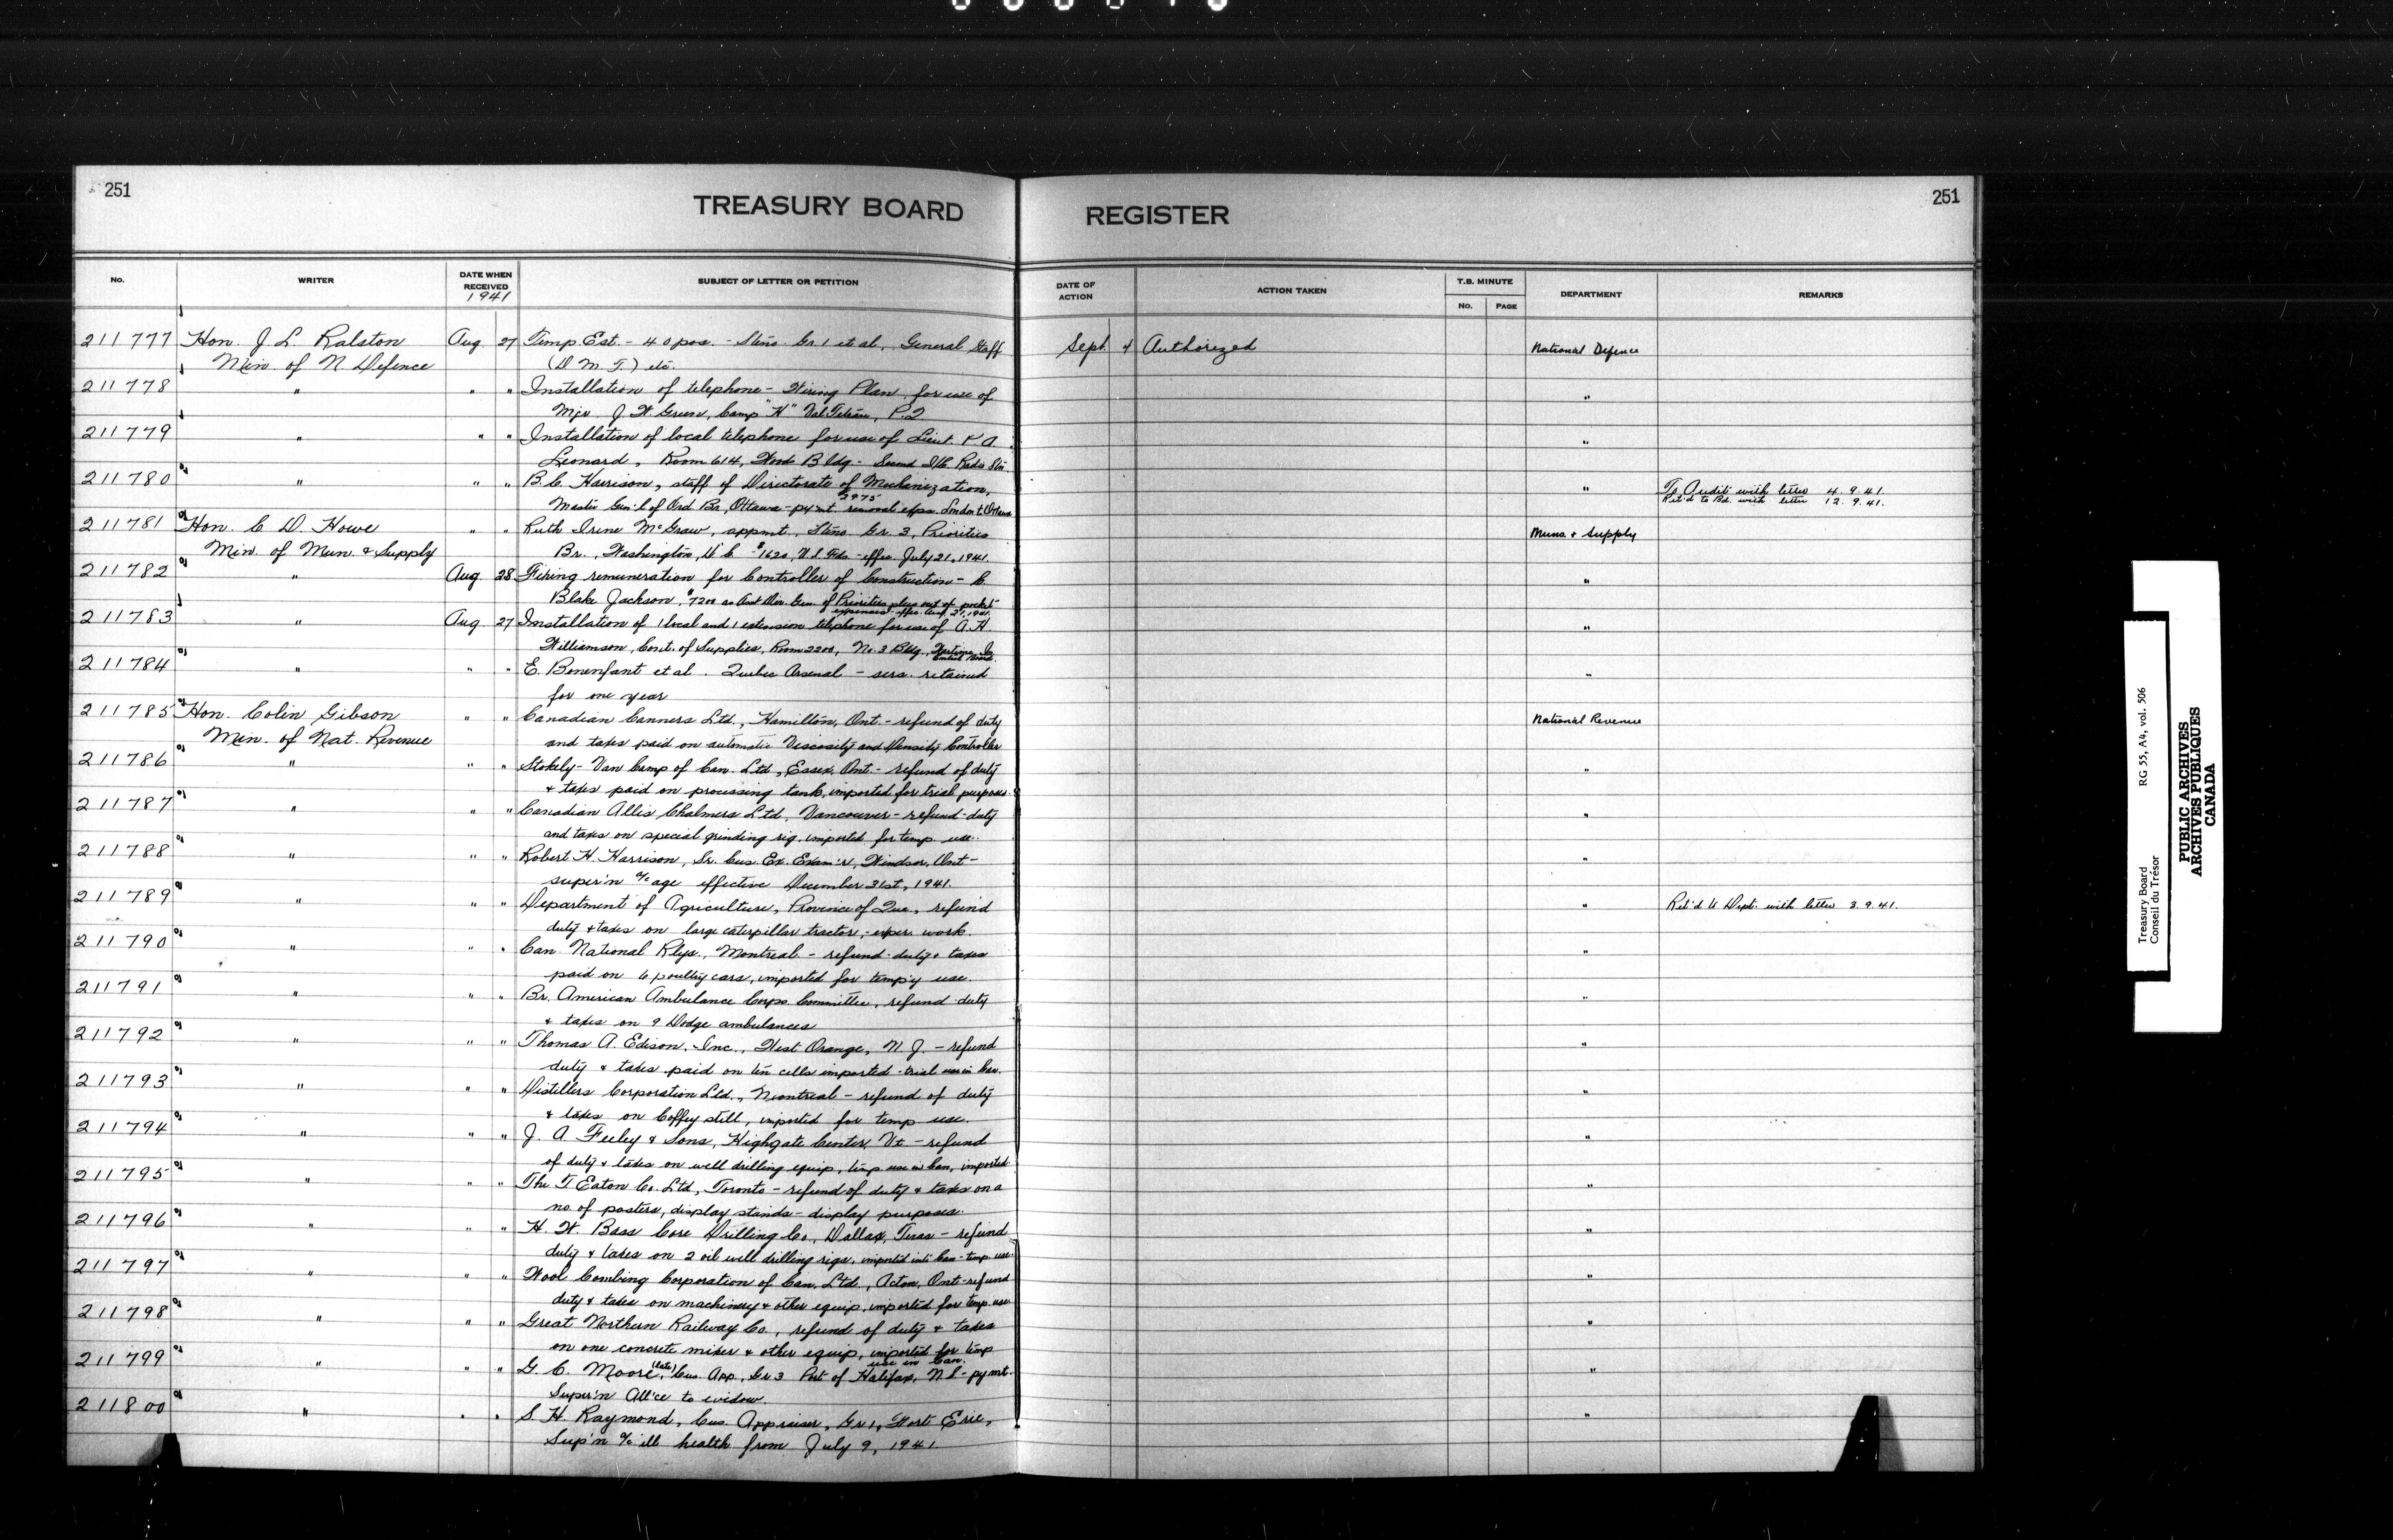 251
TREASURY BOARD
REGISTER
251
No. WRITER DATE WHEN RECEIVED SUBJECT OF LETTER OR PETITION DATE OF ACTION ACTION TAKEN T.B. MINUTE No. PAGE DEPARTMENT REMARKS
1941
211777 Hon. J. L. Ralston Aug. 27 Temp. Est. - 40 pos. - Steno. Gr. 1 et al, General Staff Sept. 4 Authorized National Defence
Min. of N. Defence (D.M.T.) etc.
211778 " " " Installation of telephone - Wiring Plan, for use of "
Mjr. J. W. Green, Camp "H" Val P.Q
211779 " " " Installation of local telephone for use of Lieut. A. "
Leonard, Room 614, Bldg - Radio
211780 " " " B. C. Harrison, staff of Directorate of Mechanization, " To Audit with letter 4.9.41.
Master Gen'l of Ord Br, Ottawa - pym't $29.75 removal exps. London to Ottawa Ret'd to Bd. with letter 12.9.41.
211781 Hon. C. D. Howe " " Ruth Irene McGraw, appmt. Steno. Gr. 3, Priorities Muns. & Supply
Min. of Mun. & Supply Br., Washington, D.C. - $1620, U.S. Fds - effec. July 21, 1941.
211782 " Aug. 28 Fixing remuneration for Controller of Construction - C. "
Blake Jackson, $7200 as Asst Dir. Gen. of Priorities plus out of pocket
expenses - effec. Aug. 21, 1941.
211783 " Aug. 27 Installation of 1 local and 1 extension telephone for use of A. H. "
Williamson, Cont. of Supplies, Room 2200, No. 3 Bldg.,
211784 " " " E. Bonenfant et al. Quebec Arsenal - sers. retained "
for one year
211785 Hon. Colin Gibson " " Canadian Canners Ltd., Hamilton, Ont. - refund of duty National Revenue
Min. of Nat. Revenue and taxes paid on automatic Viscosity and Density Controller
211786 " " " Stokely - Van Camp of Can. Ltd., Essex, Ont. - refund of duty "
& taxes paid on processing tank, imported for trial purposes.
211787 " " " Canadian Allis Chalmers Ltd, Vancouver - refund - duty "
and taxes on special grinding rig, imported for temp. use.
211788 " " " Robert H. Harrison, Sr. Cus. Ex. Exam'r, Windsor, Ont - "
super'n a/c age effective December 31st, 1941.
211789 " " " Department of Agriculture, Province of Que., refund " Ret'd to Dept. with letter 3.9.41.
duty & taxes on large caterpillar tractor, - exper. work.
211790 " " " Can. National Rlys., Montreal. - refund - duty & taxes "
paid on 6 poultry cars, imported for temp'y use.
211791 " " " Br. American Ambulance Corps Committee, refund duty "
& taxes on 9 Dodge ambulances
211792 " " " Thomas A. Edison, Inc., West Orange, N.J. - refund "
duty & taxes paid on ten cells imported - trial use in Can.
211793 " " " Distillers Corporation Ltd., Montreal - refund of duty "
& taxes on Coffey still, imported for temp use.
211794 " " " J. A. Feeley & Sons, Highgate Center, Vt - refund "
of duty & taxes on well drilling equip, temp use in Can, imported.
211795 " " " The T. Eaton Co. Ltd, Toronto - refund of duty & taxes on a "
no. of posters, display stands - display purposes.
211796 " " " H. W. Bass Core Drilling Co., Dallas, Texas - refund "
duty & taxes on 2 oil well drilling rigs, imported into Can - temp. use.
211797 " " " Wool Combing Corporation of Can. Ltd., Acton, Ont - refund "
duty & taxes on machinery & other equip, imported for temp. use.
211798 " " " Great Northern Railway Co., refund of duty & taxes "
on one concrete mixer & other equip, imported for temp
use in Can.
211799 " " " G. C. Moore (late), Cus. App., Gr 3 Port of Halifax, N.S - pymt. "
Super'n All'ce to widow.
211800 " " " S. H. Raymond, Cus. Appraiser, Gr 1, Fort Erie, "
Sup'n a/c ill health from July 9, 1941.
Treasury Board RG 55, A4, vol. 506
Conseil du Trésor
PUBLIC ARCHIVES
ARCHIVES PUBLIQUES
CANADA